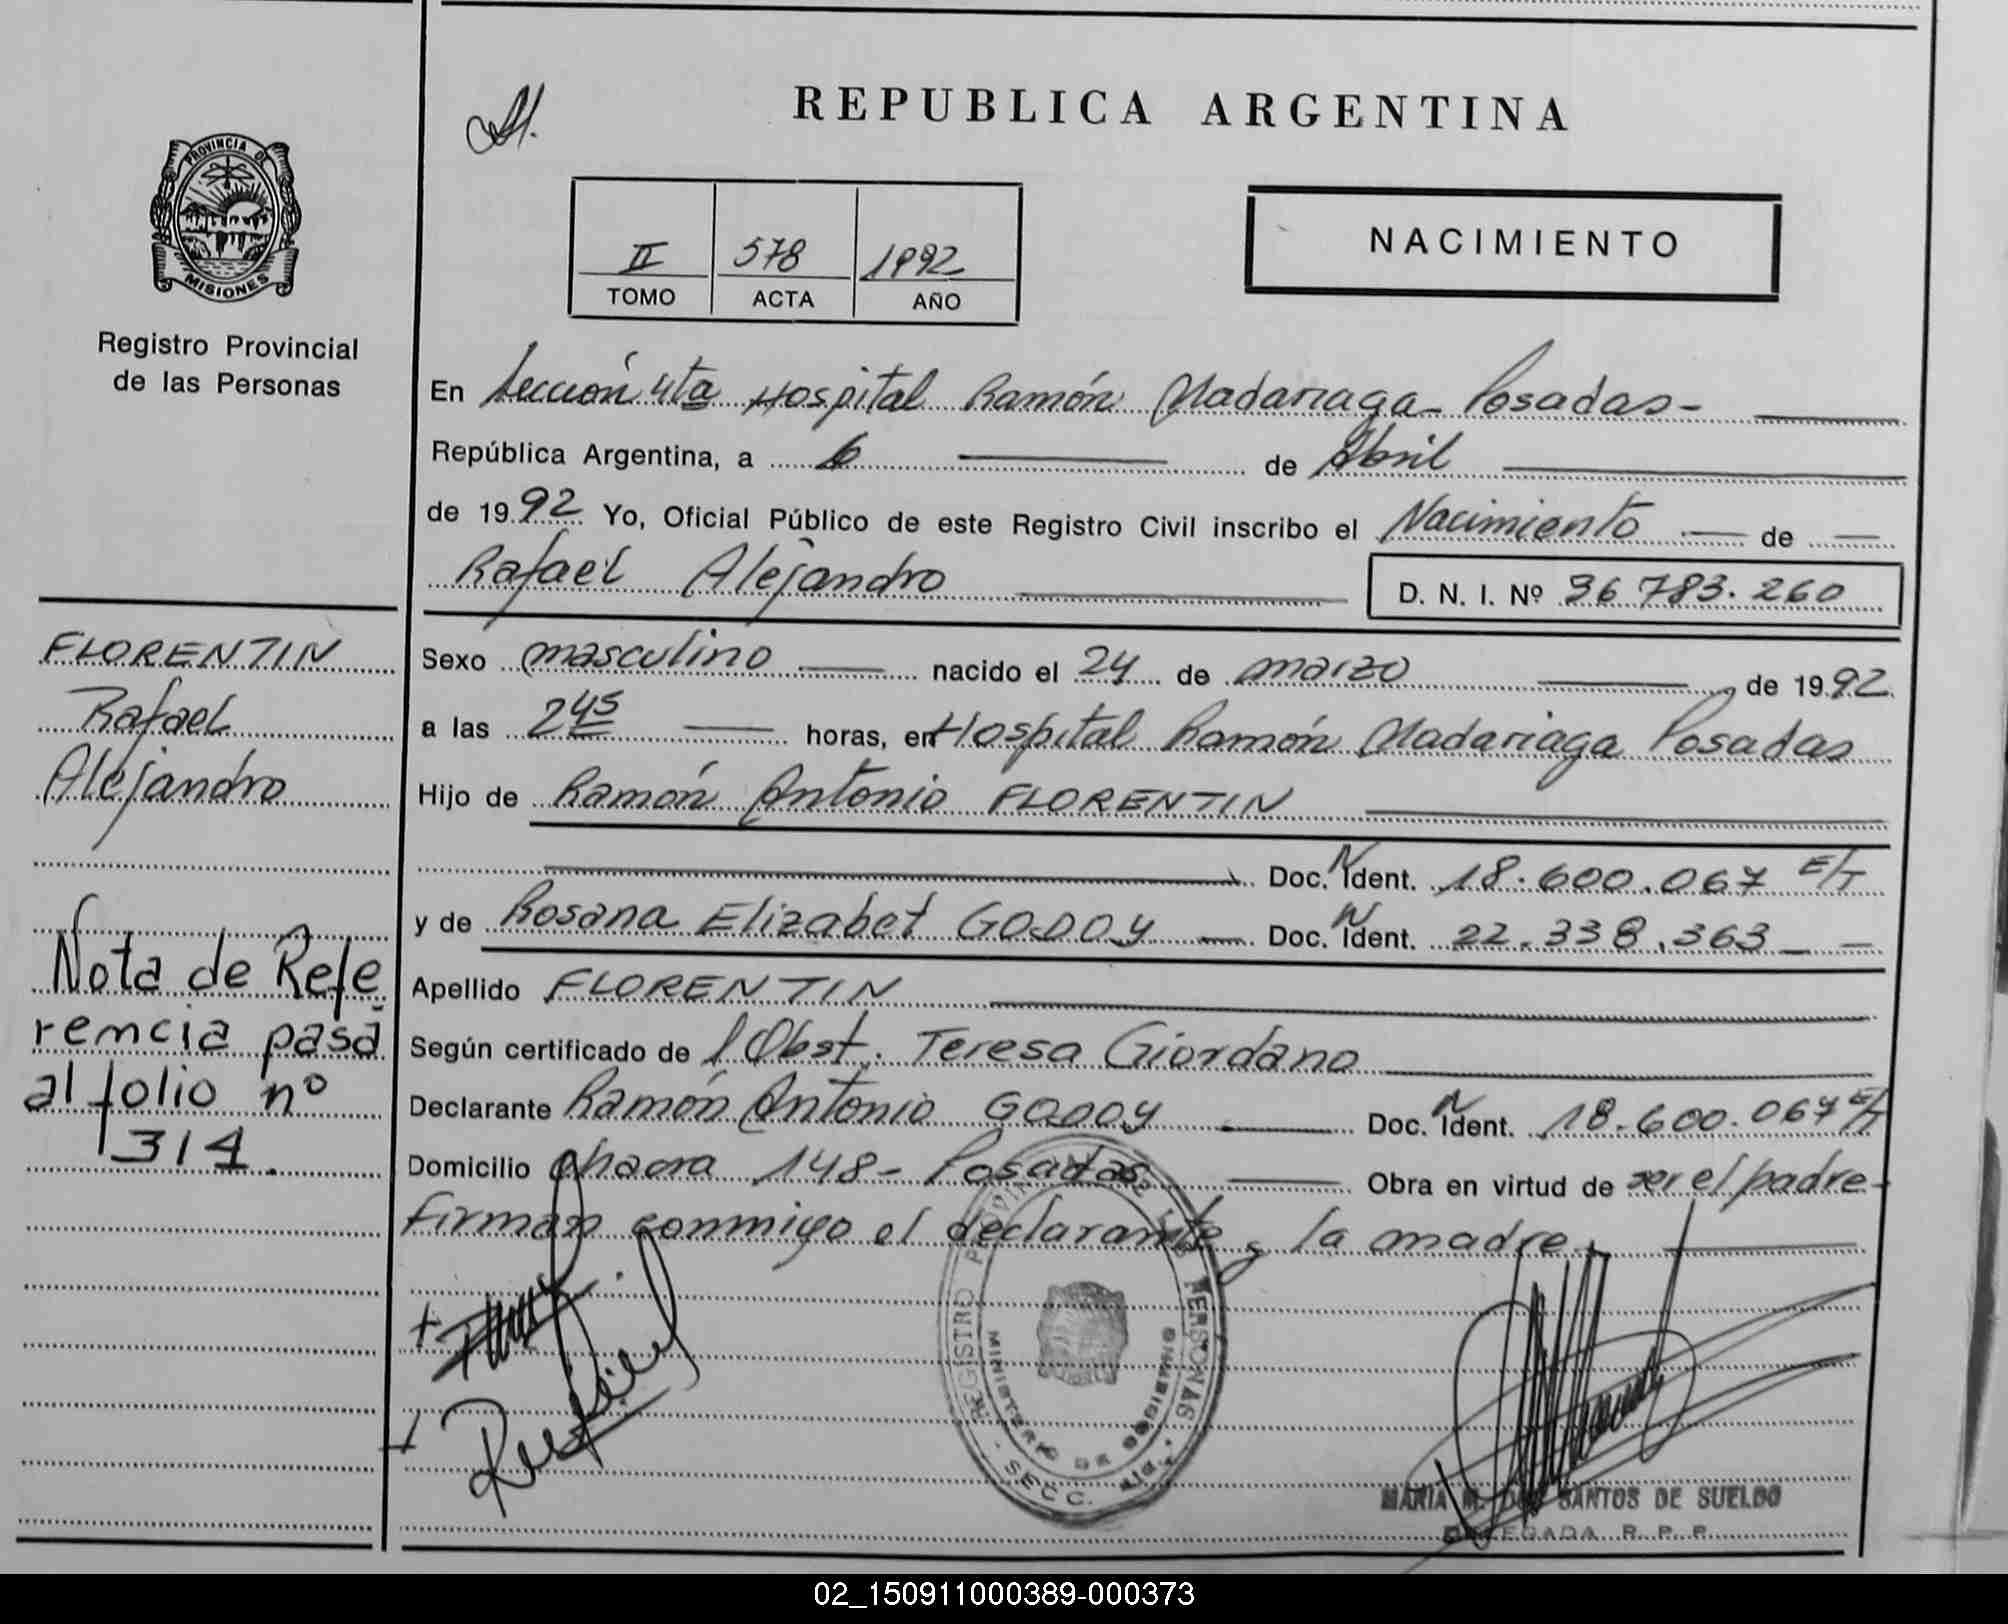 REPUBLICA ARGENTINA
PROVINCIA DE
MISIONES
Registro Provincial
de las Personas
II 578 1992
TOMO ACTA AÑO
NACIMIENTO
En Sección 4ta Hospital Ramón Madariaga - Posadas -
República Argentina, a 6 de Abril
de 1992 Yo, Oficial Público de este Registro Civil inscribo el Nacimiento de
Rafael Alejandro D. N. I. Nº 36 783.260
FLORENTIN
Rafael
Alejandro
Nota de Refe
rencia pasa
al folio nº
314.
Sexo masculino nacido el 24 de marzo de 1992
a las 2 45 horas, en Hospital Ramón Madariaga Posadas
Hijo de Ramón Antonio FLORENTIN
Doc. N Ident. 18.600.067 E/T
y de Rosana Elizabet GODOY Doc. N Ident. 22.338.363
Apellido FLORENTIN
Según certificado de Obst. Teresa Giordano
Declarante Ramón Antonio GODOY Doc. N Ident. 18.600.067 E/T
Domicilio chacra 148 - Posadas Obra en virtud de ser el padre -
Firman conmigo el declarante y la madre
REGISTRO PROVINCIAL DE LAS PERSONAS
MINISTERIO DE GOBIERNO
SECC.
MARIA M. DOS SANTOS DE SUELDO
DELEGADA R. P. P.
02_150911000389-000373